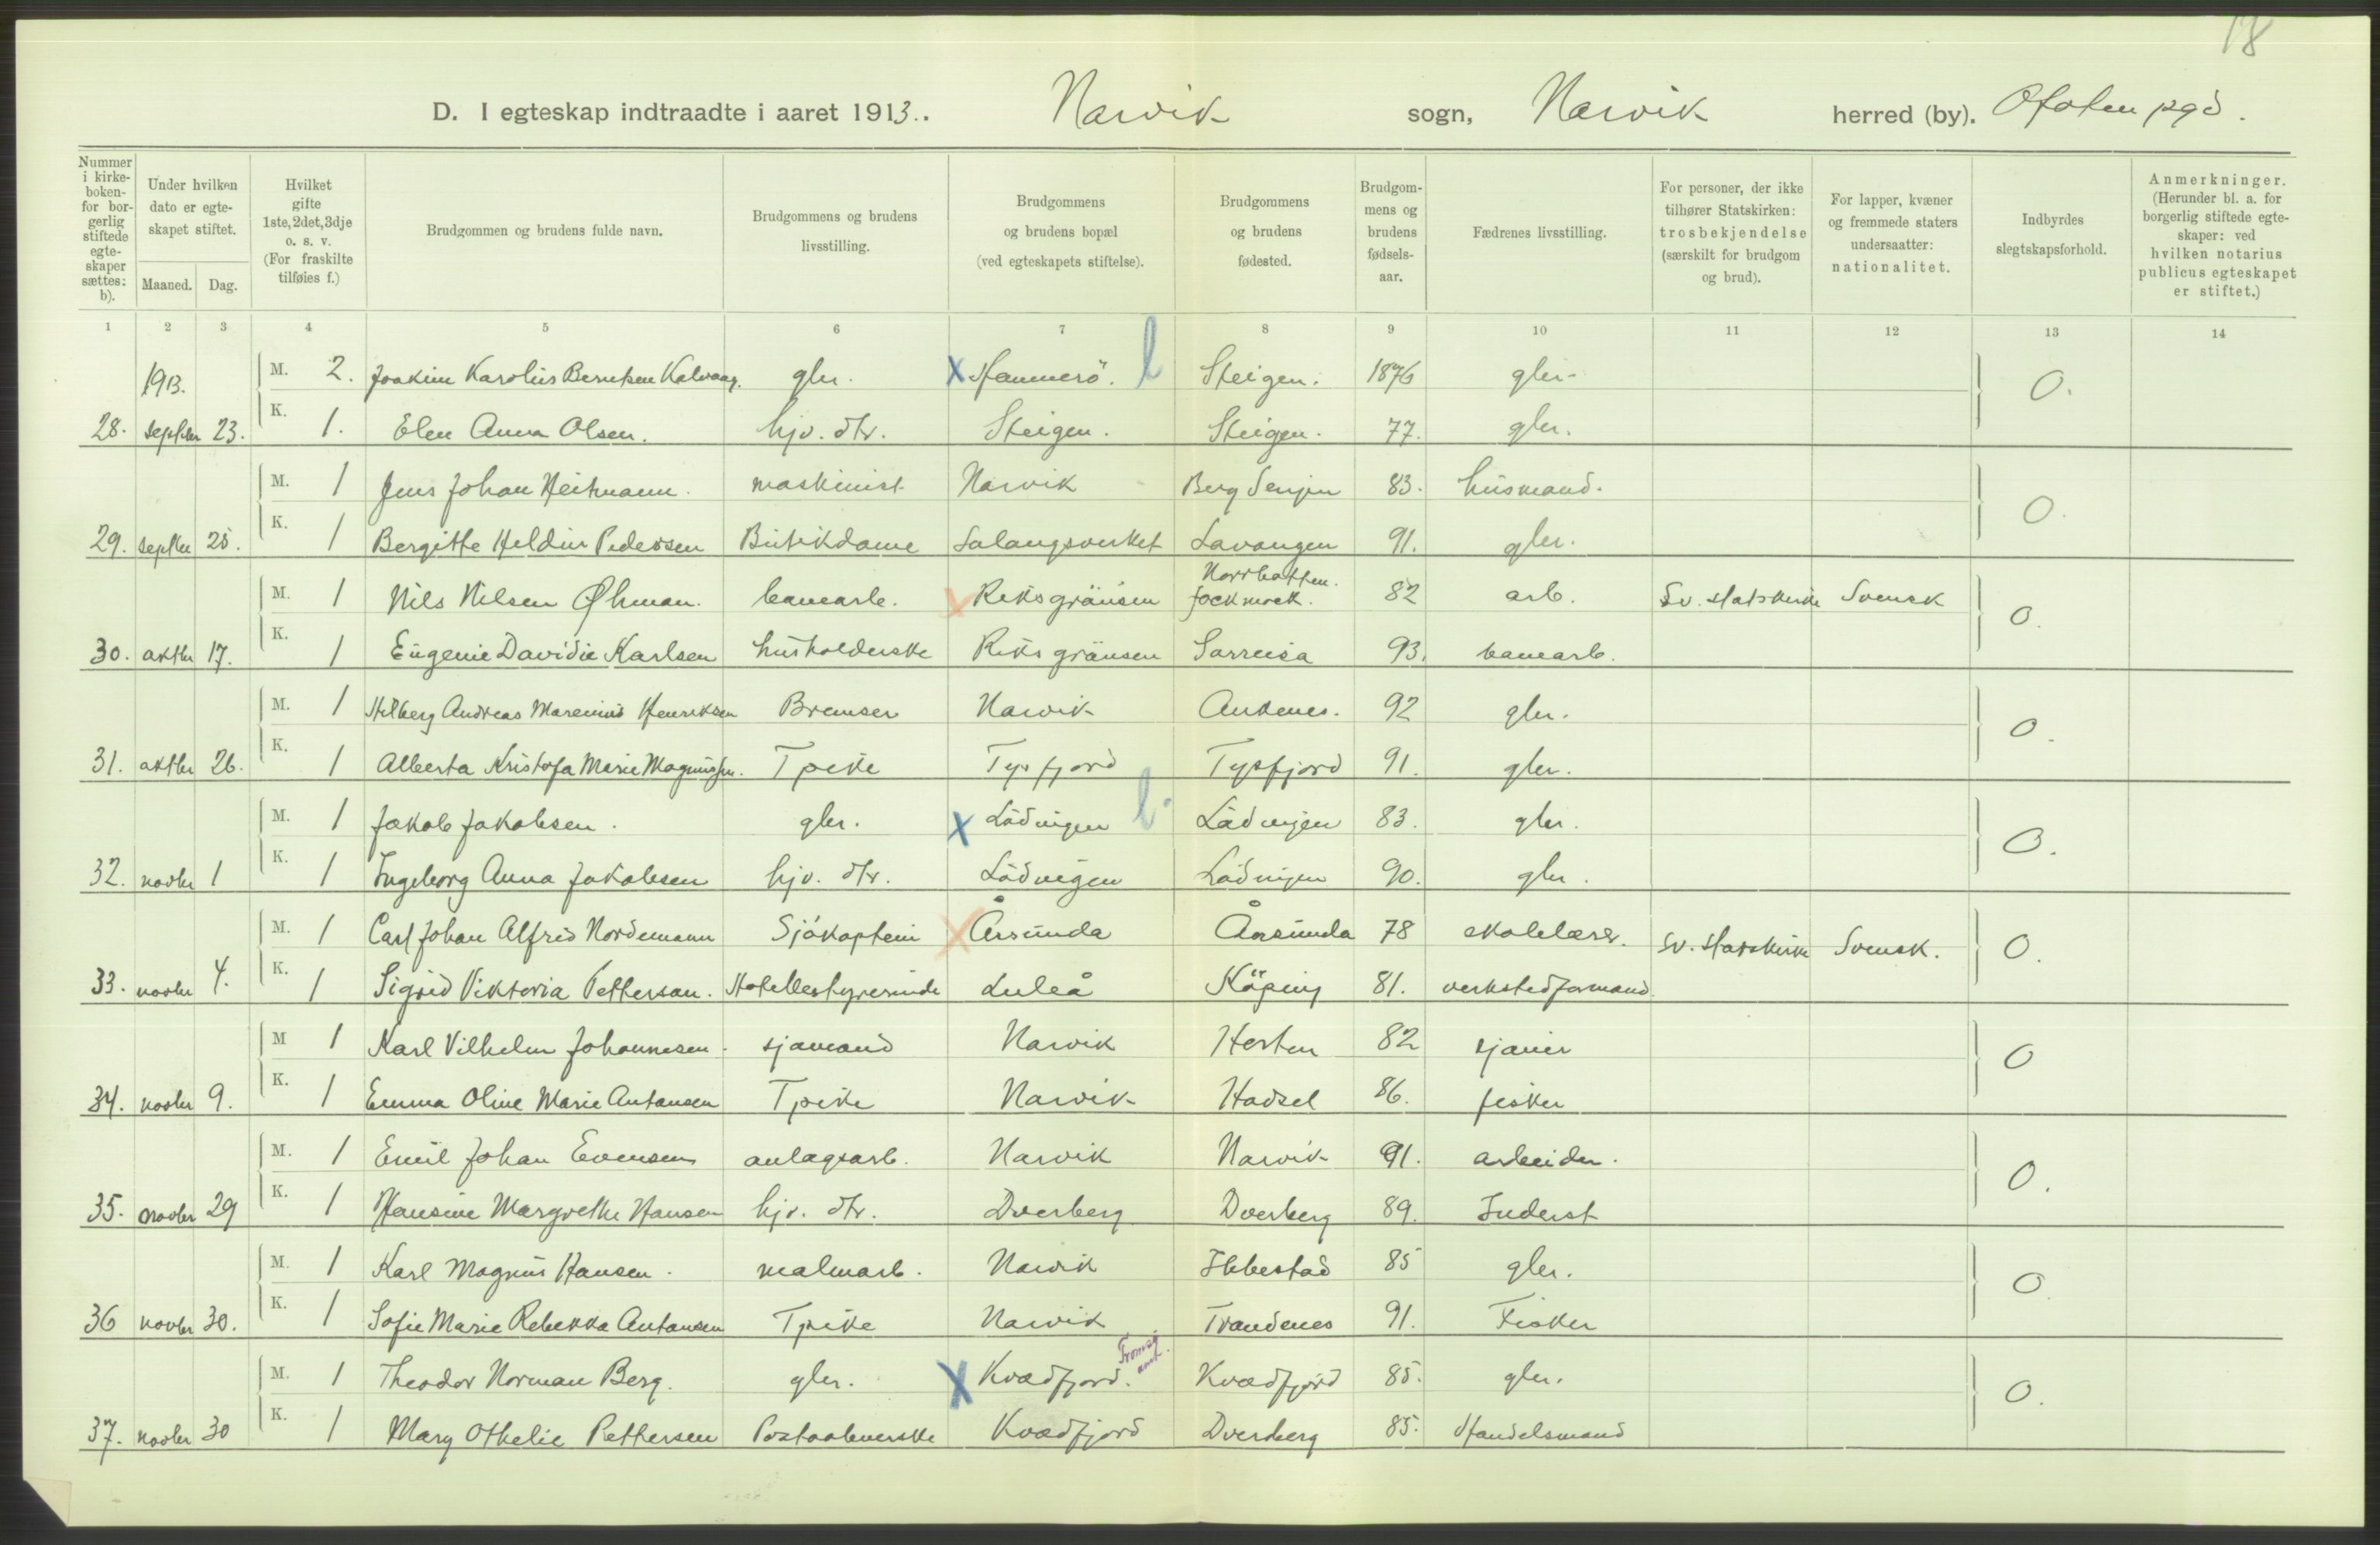 18
D. I egteskap indtraadte i aaret 1913. Narvik sogn, Narvik herred (by). Ofoten pgd.
Nummer i kirke-boken- for bor-gerlig stiftede egte-skaper sættes: b).
Under hvilken dato er egte-skapet stiftet.
Maaned. Dag.
Hvilket gifte 1ste, 2det, 3dje o. s. v. (For fraskilte tilføies f.)
Brudgommen og brudens fulde navn.
Brudgommens og brudens livsstilling.
Brudgommens og brudens bopæl (ved egteskapets stiftelse).
Brudgommens og brudens fødested.
Brudgom-mens og brudens fødsels-aar.
Fædrenes livsstilling.
For personer, der ikke tilhører Statskirken: trosbekjendelse (særskilt for brudgom og brud).
For lapper, kvæner og fremmede staters undersaatter: nationalitet.
Indbyrdes slegtskapsforhold.
Anmerkninger. (Herunder bl. a. for borgerlig stiftede egte-skaper: ved hvilken notarius publicus egteskapet er stiftet.)
1 2 3 4 5 6 7 8 9 10 11 12 13 14
1913. M. 2. Joakim Karolius Berntsen Kalvaag. glr. x Hammerö. l Steigen. 1876 glr. 0.
28. septbr 23. K. 1. Elen Anna Olsen. hjv. dtr. Steigen. Steigen. 77. glr.
M. 1 Jens Johan Heitmann. maskinist Narvik Berg Senjen 83. husmand. 0.
29. septbr 25. K. 1 Bergitte Heldine Pedersen Butikdame Salangsverket Lavangen 91. glr.
M. 1 Nils Nilsen Øhman. banearb. x Riksgränsen Norrbotten. Jockmock. 82 arb. Sv. statskirke Svensk 0.
30. oktbr 17. K. 1 Eugenie Davidie Karlsen husholderske Riksgränsen Sørreisa 93. banearb.
M. 1 Hilberg Andreas Marenius Henriksen Bremser Narvik Ankenes. 92 glr. 0.
31. oktbr 26. K. 1 Alberta Kristofa Marie Magnussen. Tpike Tysfjord Tysfjord 91. glr.
M. 1 Jakob Jakobsen. glr. x Lödingen l. Lödingen 83. glr. 0.
32. novbr 1 K. 1 Ingeborg Anna Jakobsen hjv. dtr. Lödingen Lödingen 90. glr.
M. 1 Carl Johan Alfred Nordemann Sjökaptein x Årsunda Årsunda 78 skolelærer. Sv. statskirke Svensk. 0.
33. novbr 4. K. 1 Sigrid Viktoria Petterson. Hotelbestyrerinde Luleå Köping 81. verkstedformand.
M 1 Karl Vilhelm Johannesen. sjømand Narvik Horten 82 sjøuer 0
34. novbr 9. K. 1 Emma Oline Marie Antonsen Tpike Narvik Hadsel 86. fisker
M. 1 Emil Johan Evensen anlægsarb. Narvik Narvik 91. arbeider. 0.
35. novbr 29 K. 1 Hansine Margrethe Hansen hjv. dtr. Dverberg Dverberg 89. Inderst
M. 1 Karl Magnus Hansen. malmarb. Narvik Ibbestad 85 glr. 0.
36 novbr 30. K. 1 Sofie Marie Rebekka Antonsen Tpike Narvik Trondenes 91. Fisker
M. 1 Theodor Norman Berg. glr. x Kvædfjord. Tromsø amt. Kvædfjord 85. glr. 0.
37. novbr 30 K. 1 Mary Othelie Pettersen Postaabnerske Kvædfjord Dverberg 85. Handelsmand